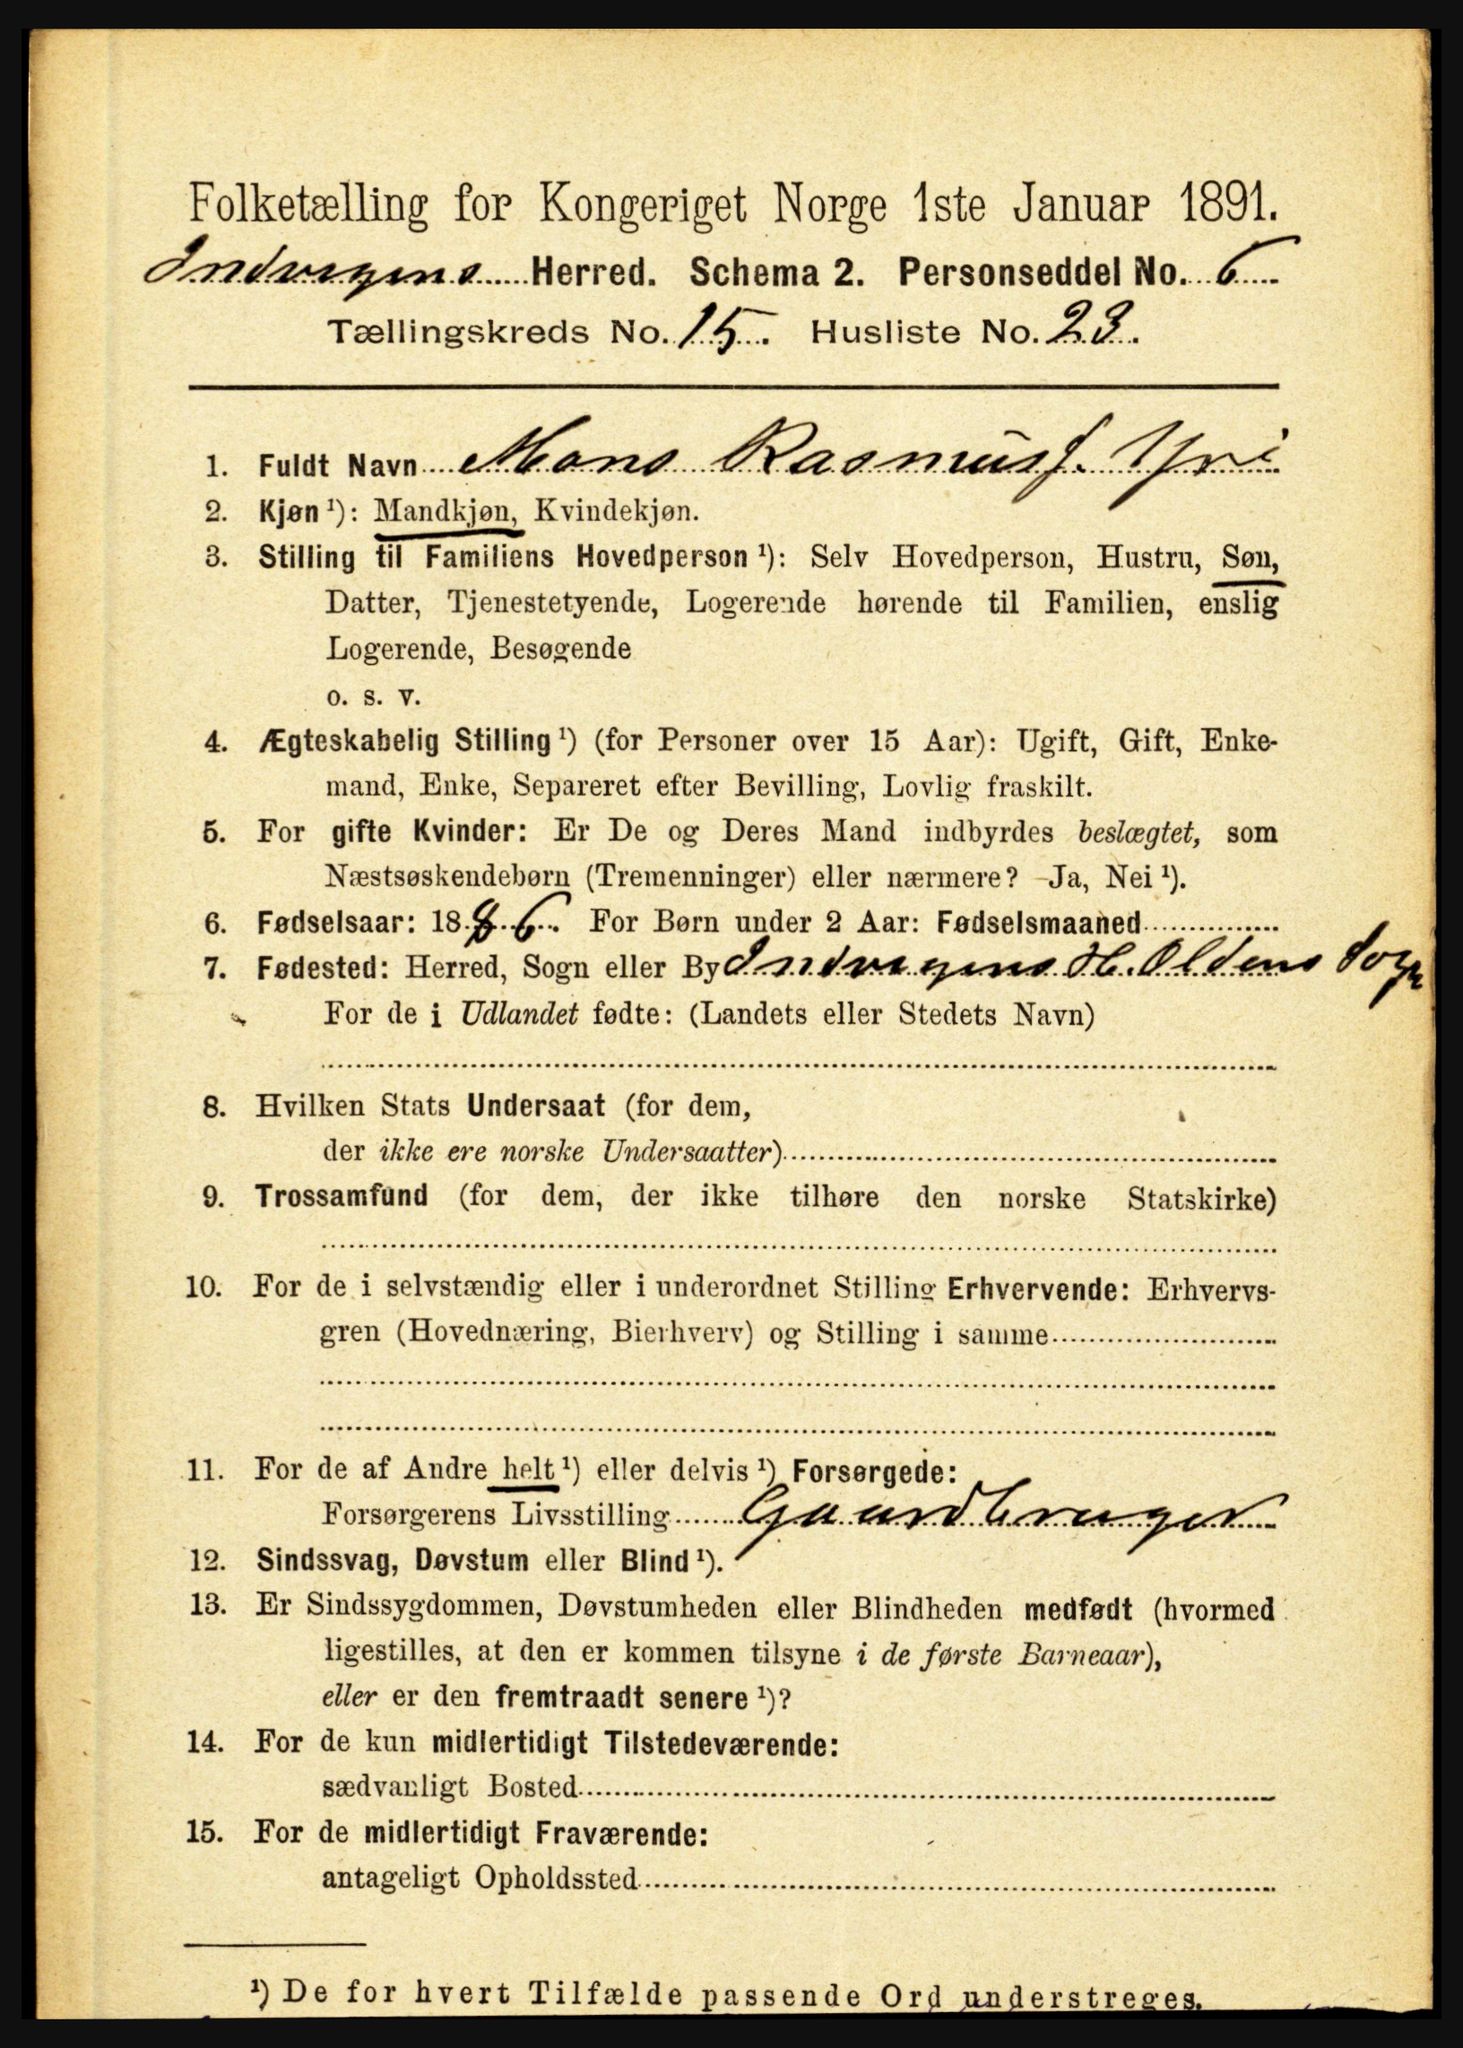 Folketælling for Kongeriget Norge 1ste Januar 1891.
Indvigens Herred. Schema 2. Personseddel No. 6
Tællingskreds No. 15. Husliste No. 23.
1. Fuldt Navn Mons Rasmusf. Yri
2. Kjøn ¹): Mandkjøn, Kvindekjøn.
3. Stilling til Familiens Hovedperson ¹): Selv Hovedperson, Hustru, Søn,
Datter, Tjenestetyende, Logerende hørende til Familien, enslig
Logerende, Besøgende
o. s. v.
4. Ægteskabelig Stilling ¹) (for Personer over 15 Aar): Ugift, Gift, Enke-
mand, Enke, Separeret efter Bevilling, Lovlig fraskilt.
5. For gifte Kvinder: Er De og Deres Mand indbyrdes beslægtet, som
Næstsøskendebørn (Tremenninger) eller nærmere? Ja, Nei ¹).
6. Fødselsaar: 1886. For Børn under 2 Aar: Fødselsmaaned
7. Fødested: Herred, Sogn eller By Indvigens H. Oldens Sogn
For de i Udlandet fødte: (Landets eller Stedets Navn)
8. Hvilken Stats Undersaat (for dem,
der ikke ere norske Undersaatter)
9. Trossamfund (for dem, der ikke tilhøre den norske Statskirke)
10. For de i selvstændig eller i underordnet Stilling Erhvervende: Erhvervs-
gren (Hovednæring, Bierhverv) og Stilling i samme
11. For de af Andre helt ¹) eller delvis ¹) Forsørgede:
Forsørgerens Livsstilling Gaardbruger
12. Sindssvag, Døvstum eller Blind ¹).
13. Er Sindssygdommen, Døvstumheden eller Blindheden medfødt (hvormed
ligestilles, at den er kommen tilsyne i de første Barneaar),
eller er den fremtraadt senere ¹)?
14. For de kun midlertidigt Tilstedeværende:
sædvanligt Bosted
15. For de midlertidigt Fraværende:
antageligt Opholdssted
¹) De for hvert Tilfælde passende Ord understreges.